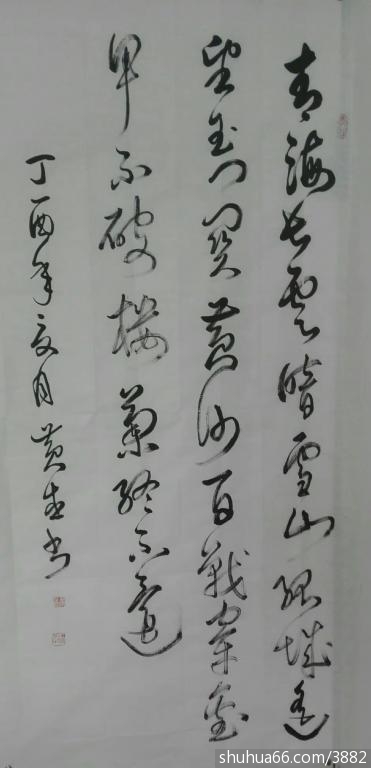 青海长雲暗雪山孤城遥
望玉门関黄沙百戰穿金
甲不破楼蘭终不還
丁酉年夏月黄书
shuhua66.com/3882